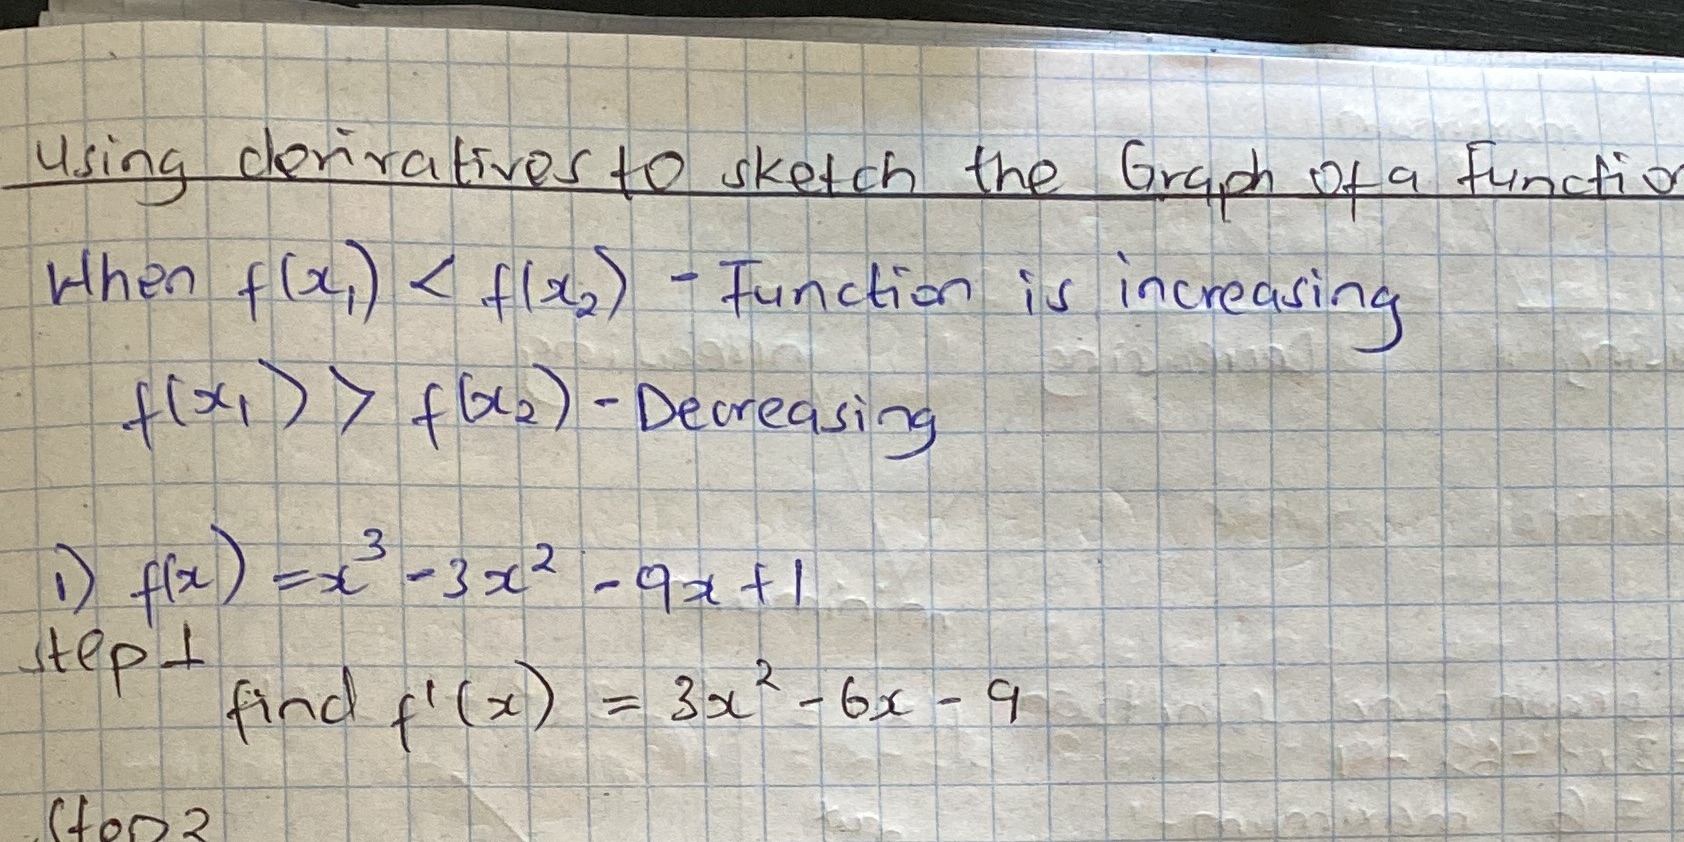 Using derivatives to sketch the Graph of a functio
When f(x₁) < f(x₂) - Function is increasing
f(x₁) > f(x₂) - Decreasing
1) f(x) = x³ - 3x² - 9x + 1
step 1
find f'(x) = 3x² - 6x - 9
Step 2